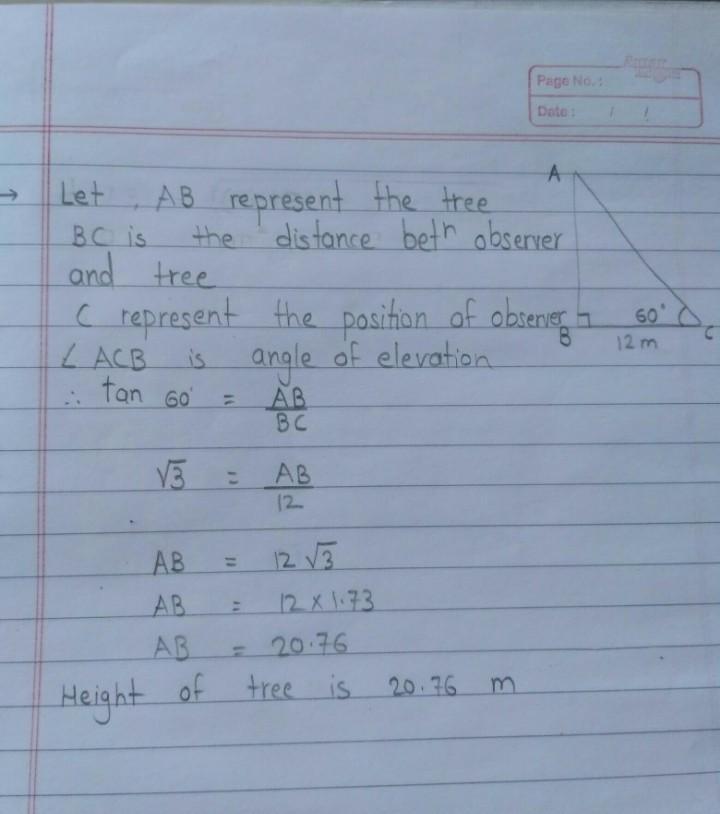 Page No. :
Date : / /
→ Let, AB represent the tree
BC is the distance betⁿ observer
and tree
C represent the position of observer
∠ ACB is angle of elevation
A
B
C
60°
12 m
∴ tan 60° = AB
BC
√3 = AB
12
AB = 12 √3
AB = 12 × 1.73
AB = 20.76
Height of tree is 20.76 m